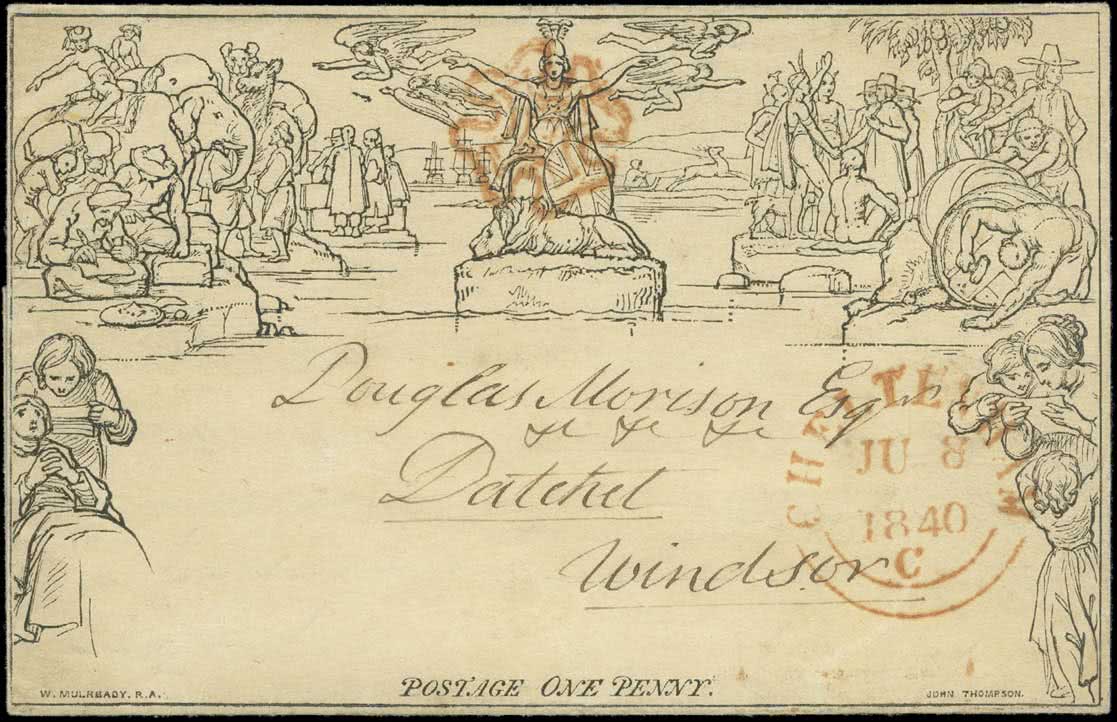 Douglas Morison Esqr
&c &c &c
Datchet
Windsor
CHELTENHAM
JU 8
1840
C
W. MULREADY, R.A.
POSTAGE ONE PENNY.
JOHN THOMPSON.